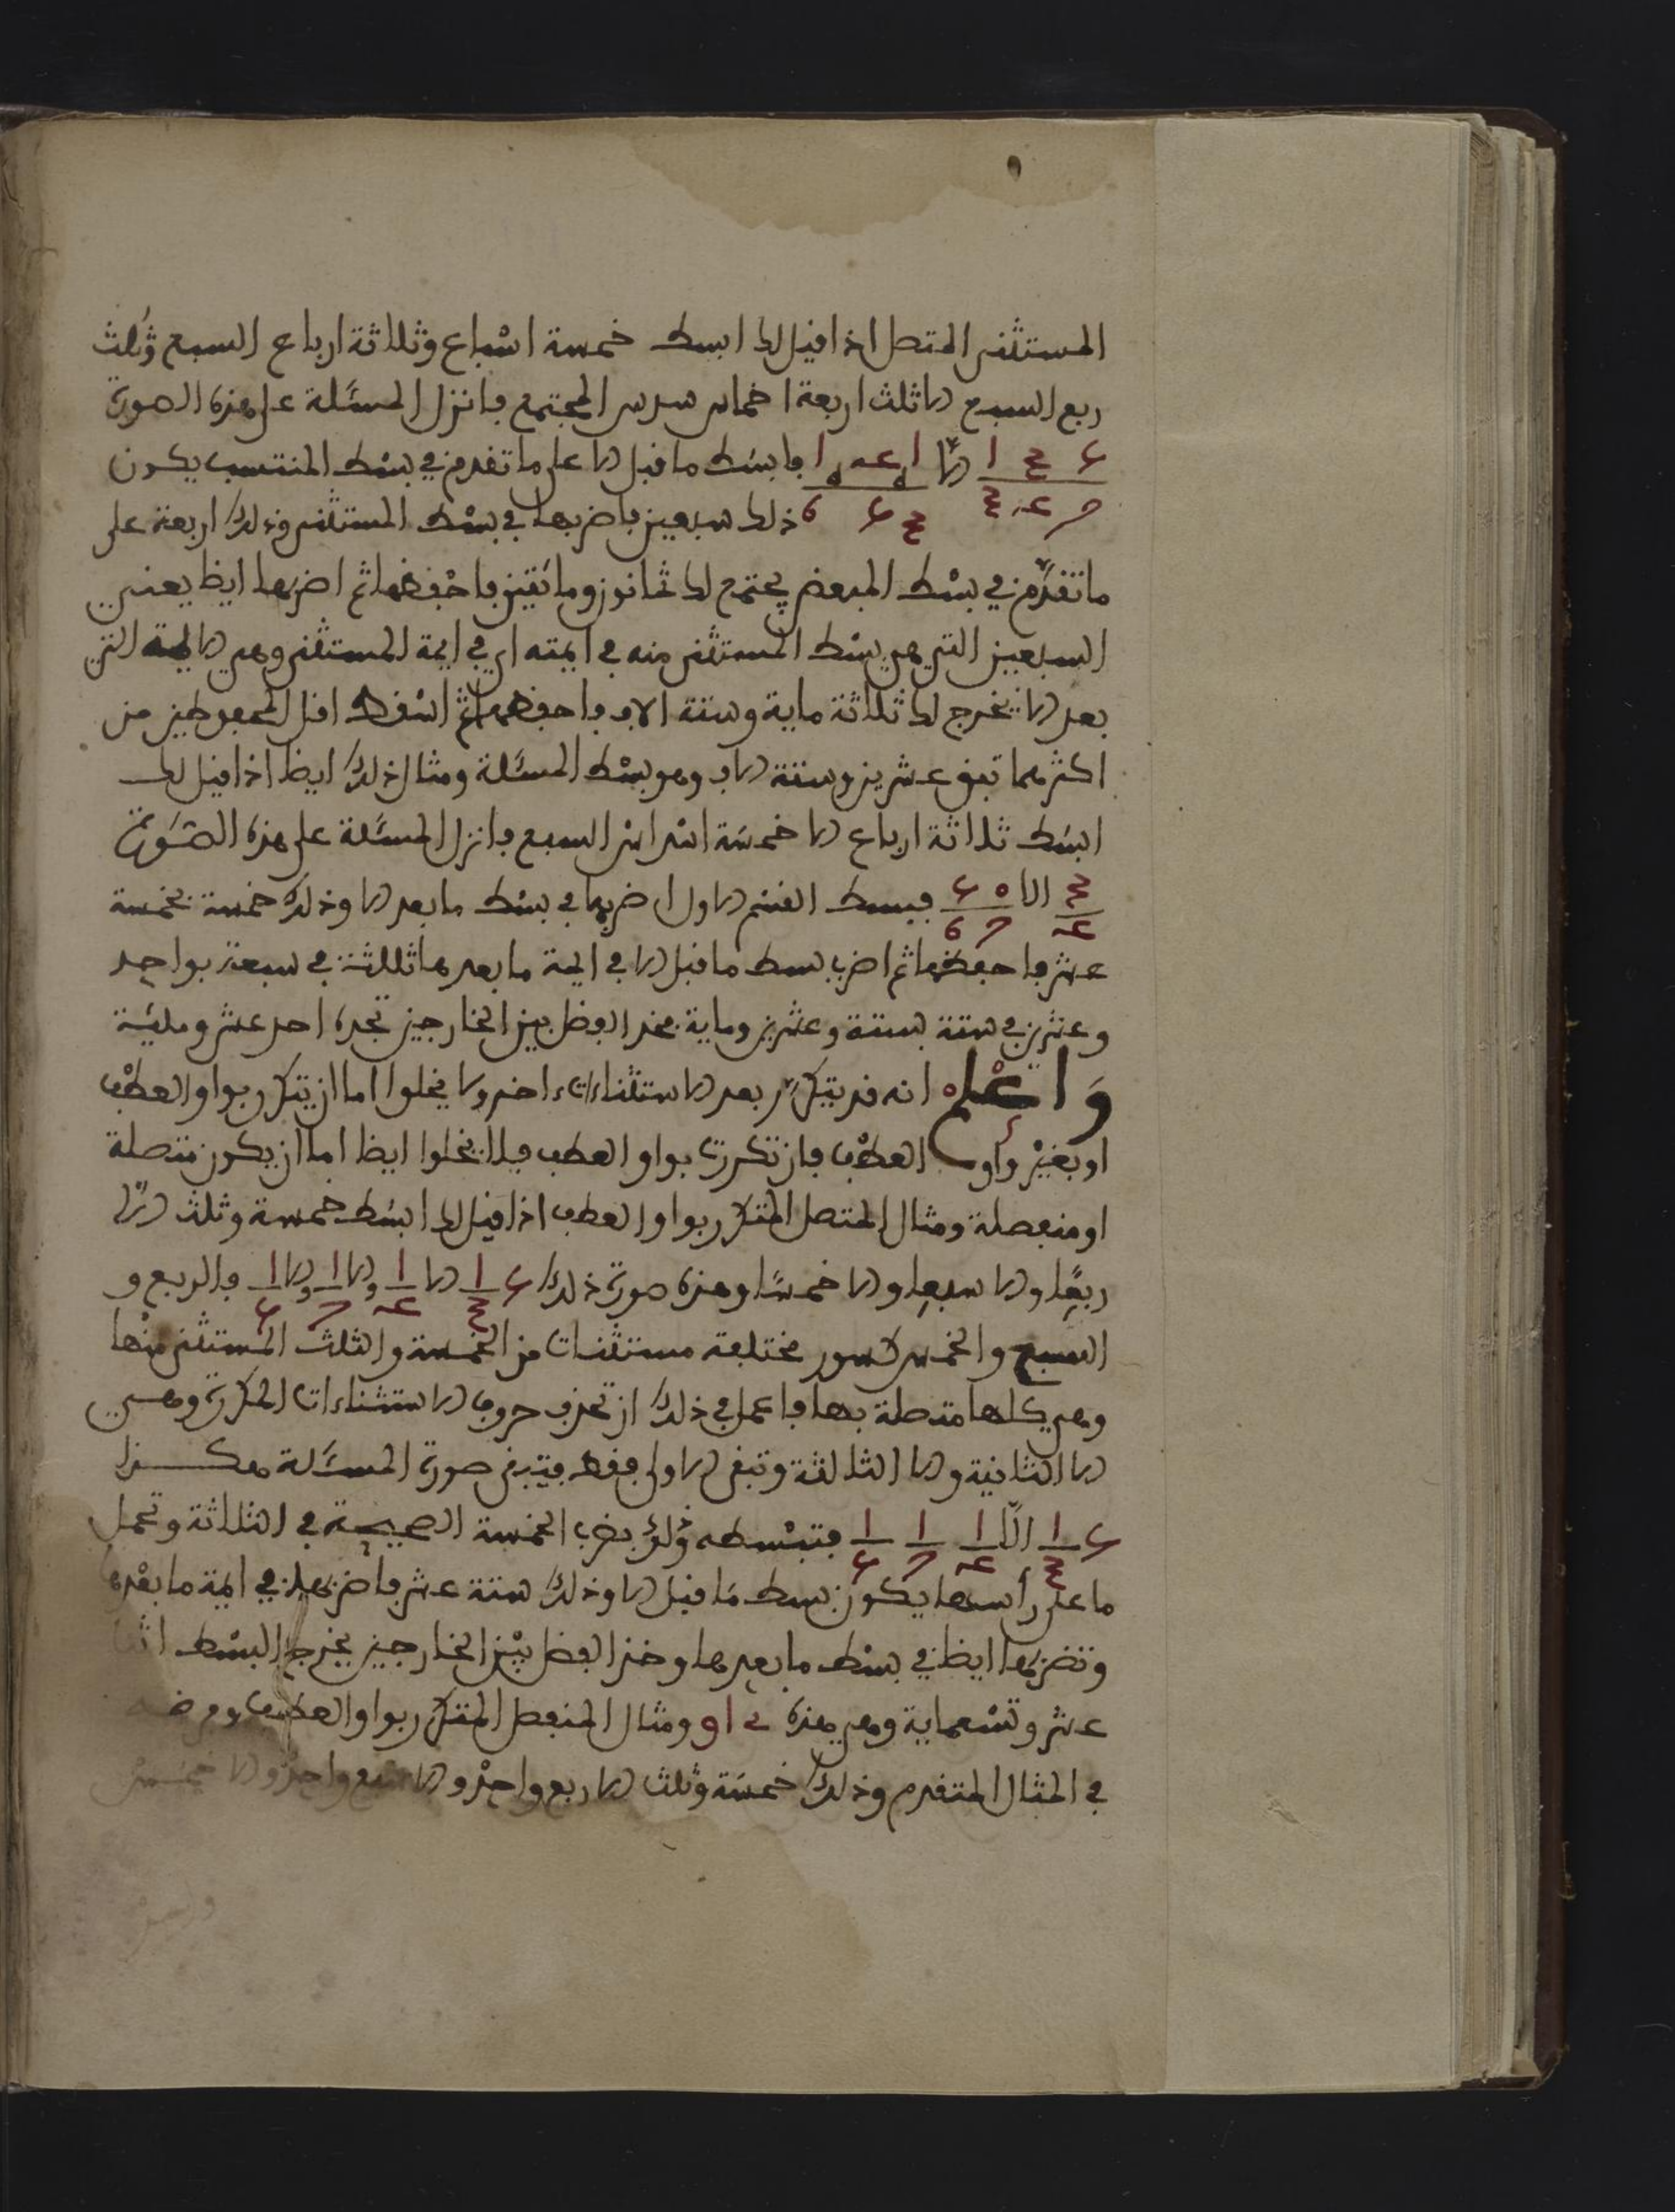 المستثنى المتصل اذا قيل لك ابسط خمسة اسباع وثلاثة ارباع السبع وثلث
ربع السبع الا ثلث اربعة اخماس سدس المجتمع فانزل المسئلة على هذه الصورة
فابسط ما قبل الا على ما تقدم في بسط المنتسب يكون
ذلك سبعين فاضربها في بسط المستثنى وذلك اربعة على
ما تقدم في بسط المبعض يجتمع لك ثمانون ومائتين فاحفظها ثم اضربها ايظا يعني
السبعين التي هي بسط المستثنى منه في ايمته اي في ايمة المستثنى وهي الايمة التي
بعد الا يخرج لك ثلاثة ماية وستة الاف فاحفظها ثم اسقط اقل المحفوظين من
اكثرهما تبقى عشرين وستة الاف وهو بسط المسئلة ومثال ذلك ايظا اذا قيل لك
ابسط ثلاثة ارباع الا خمسة اسداس السبع فانزل المسئلة على هذه الصورة
الا فبسط القسم الاول اضربها في بسط ما بعد الا وذلك خمسة بخمسة
عشر فاحفظها ثم اضرب بسط ما قبل الا في ايمة ما بعدها ثلاثة في سبعة بواحد
وعشرين في ستة بستة وعشرين وماية فخذ الفظل بين الخارجين تجده احد عشر ومائة
واعلم انه قد يتكرر بعد الاستثناء استثناء اخر ولا يخلوا اما ان يتكرر بواو العطف
او بغير واو العطف فان تكررت بواو العطف فلا يخلوا ايظا اما ان يكون متصلة
او منفصلة ومثال المتصل المتكرر بواو العطف اذا قيل لك ابسط خمسة وثلث الا
ربعا والا سبعا والا خمسا وهذه صورة ذلك فالربع و
السبع والخمس كسور مختلفة مستثنات من الخمسة والثلث المستثنى منها
وهي كلها متصلة بها فاعمل في ذلك ان تحذف حروف الاستثناءات المكررة وهي
الا الثانية والا الثالثة وتبقى الاولى فقط فتبقى صورة المسئلة هكذا
الا فتبسطه وذلك بضرب الخمسة الصحيحة في الثلاثة وتحمل
ما على رأسها يكون بسط ما قبل الا وذلك ستة عشر فاضربها في ايمة ما بعدها
وتضربها ايظا في بسط ما بعدها وخذ الفظل بين الخارجين يخرج البسط
عشر وتسعماية وهي هذه ومثال المنفصل المتكرر بواو العطف
في المثال المتقدم وذلك خمسة وثلث الا ربع واحد والا سبع واحد والا